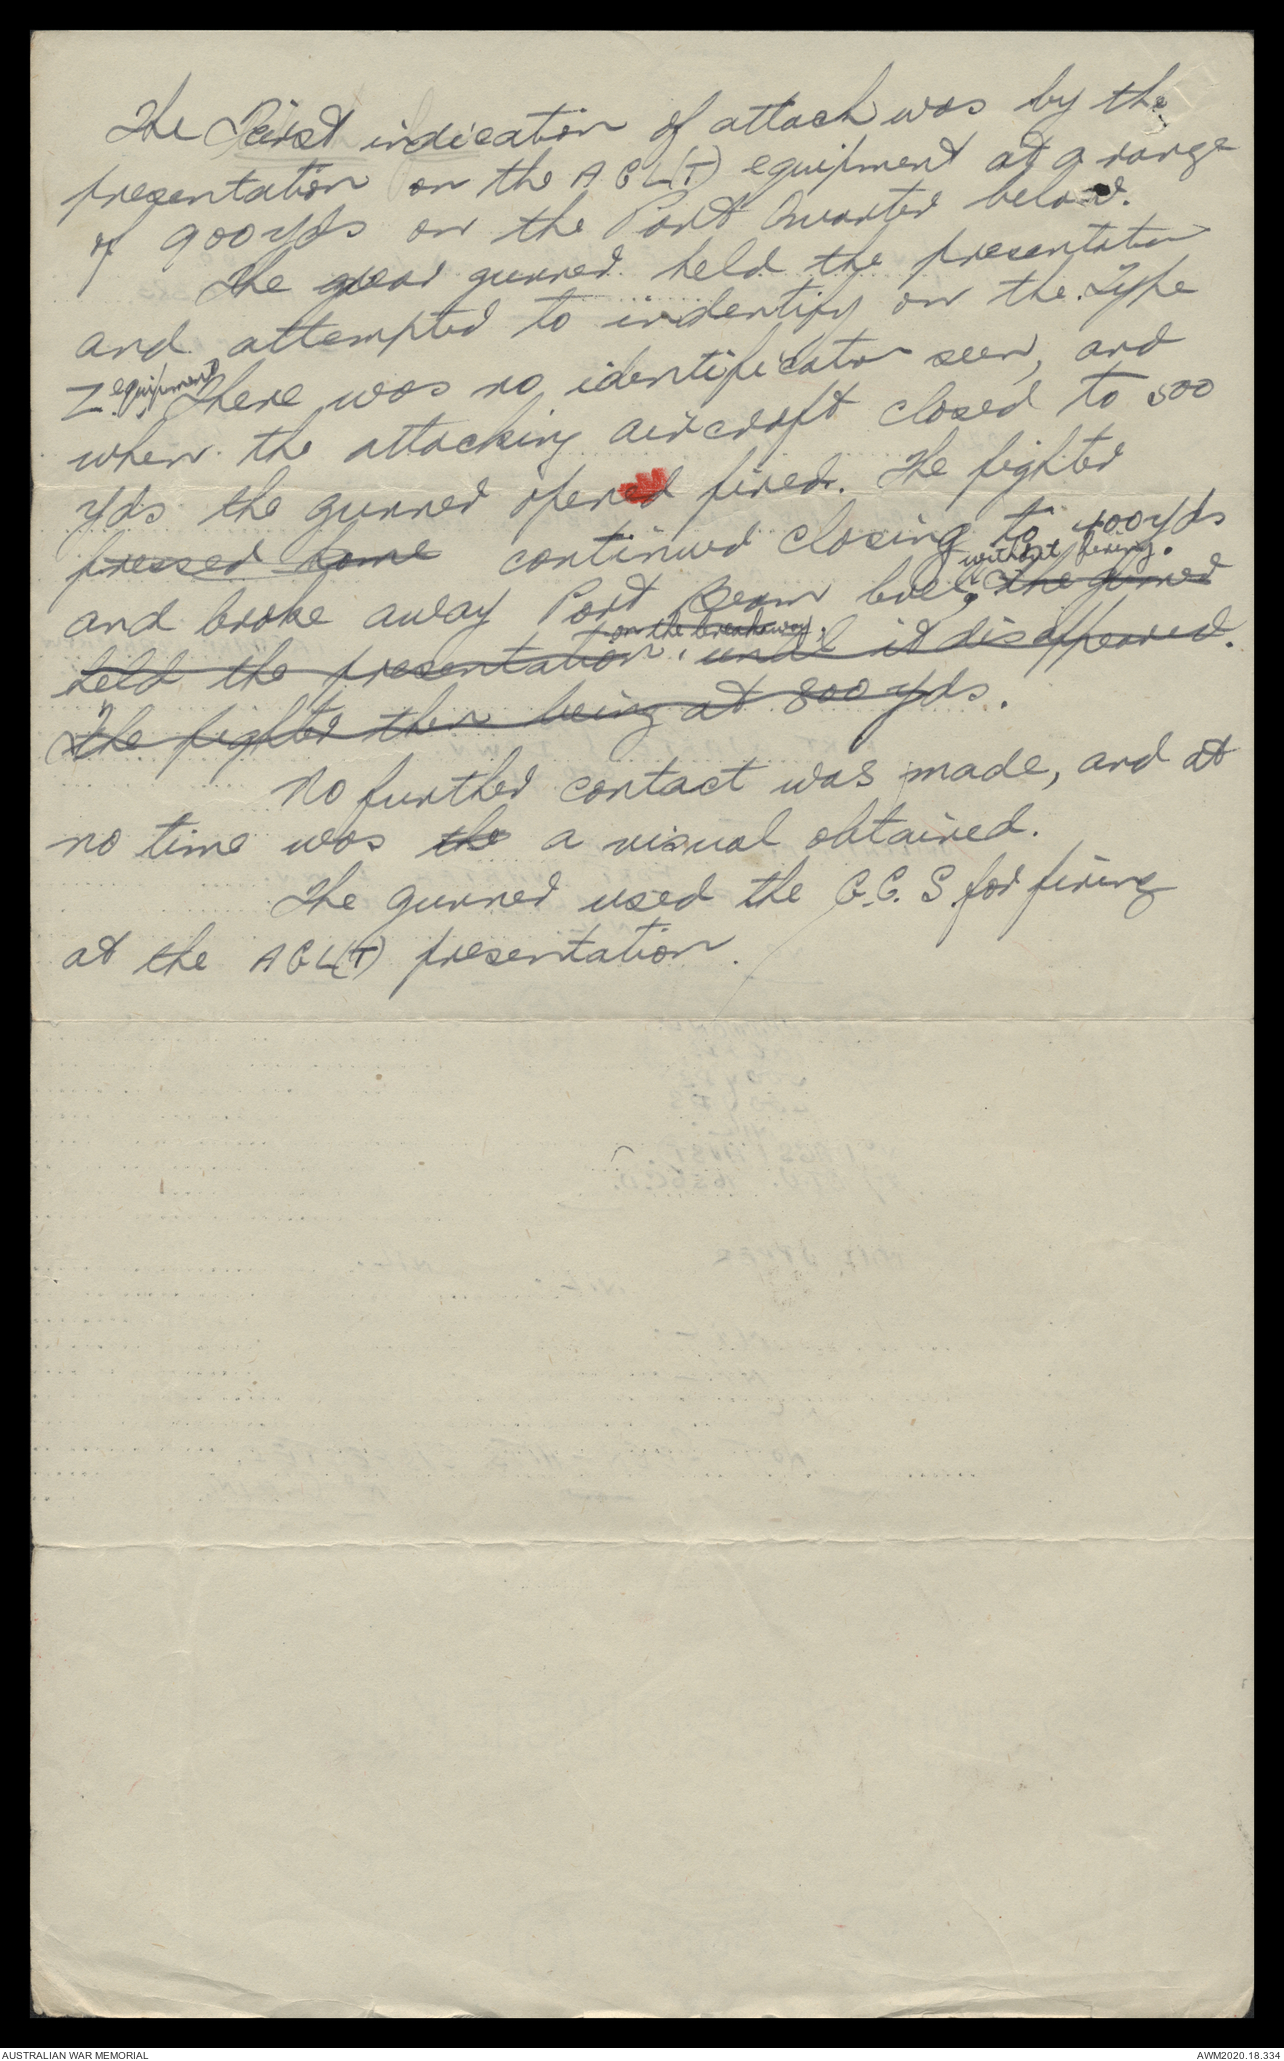 The First indication of attack was by the
presentation on the AGL(T) equipment at a range
of 900yds on the Port Quarter below.
The rear gunner held the presentation
and attempted to indentify on the Type
Z equipment. There was no identification seen, and
when the attacking aircraft closed to 500
yds the gunner opened fired. The fighter
pressed home continued closing to 400yds
without firing.
and broke away Port Beam level. The gunner
on the breakaway.
held the presentation. until it disappeared.
The fighter then being at 800yds.
No further contact was made, and at
no time was the a visual obtained.
The gunner used the G.G.S. for firing
at the AGL(T) presentation.
AUSTRALIAN WAR MEMORIAL
AWM2020.18.334